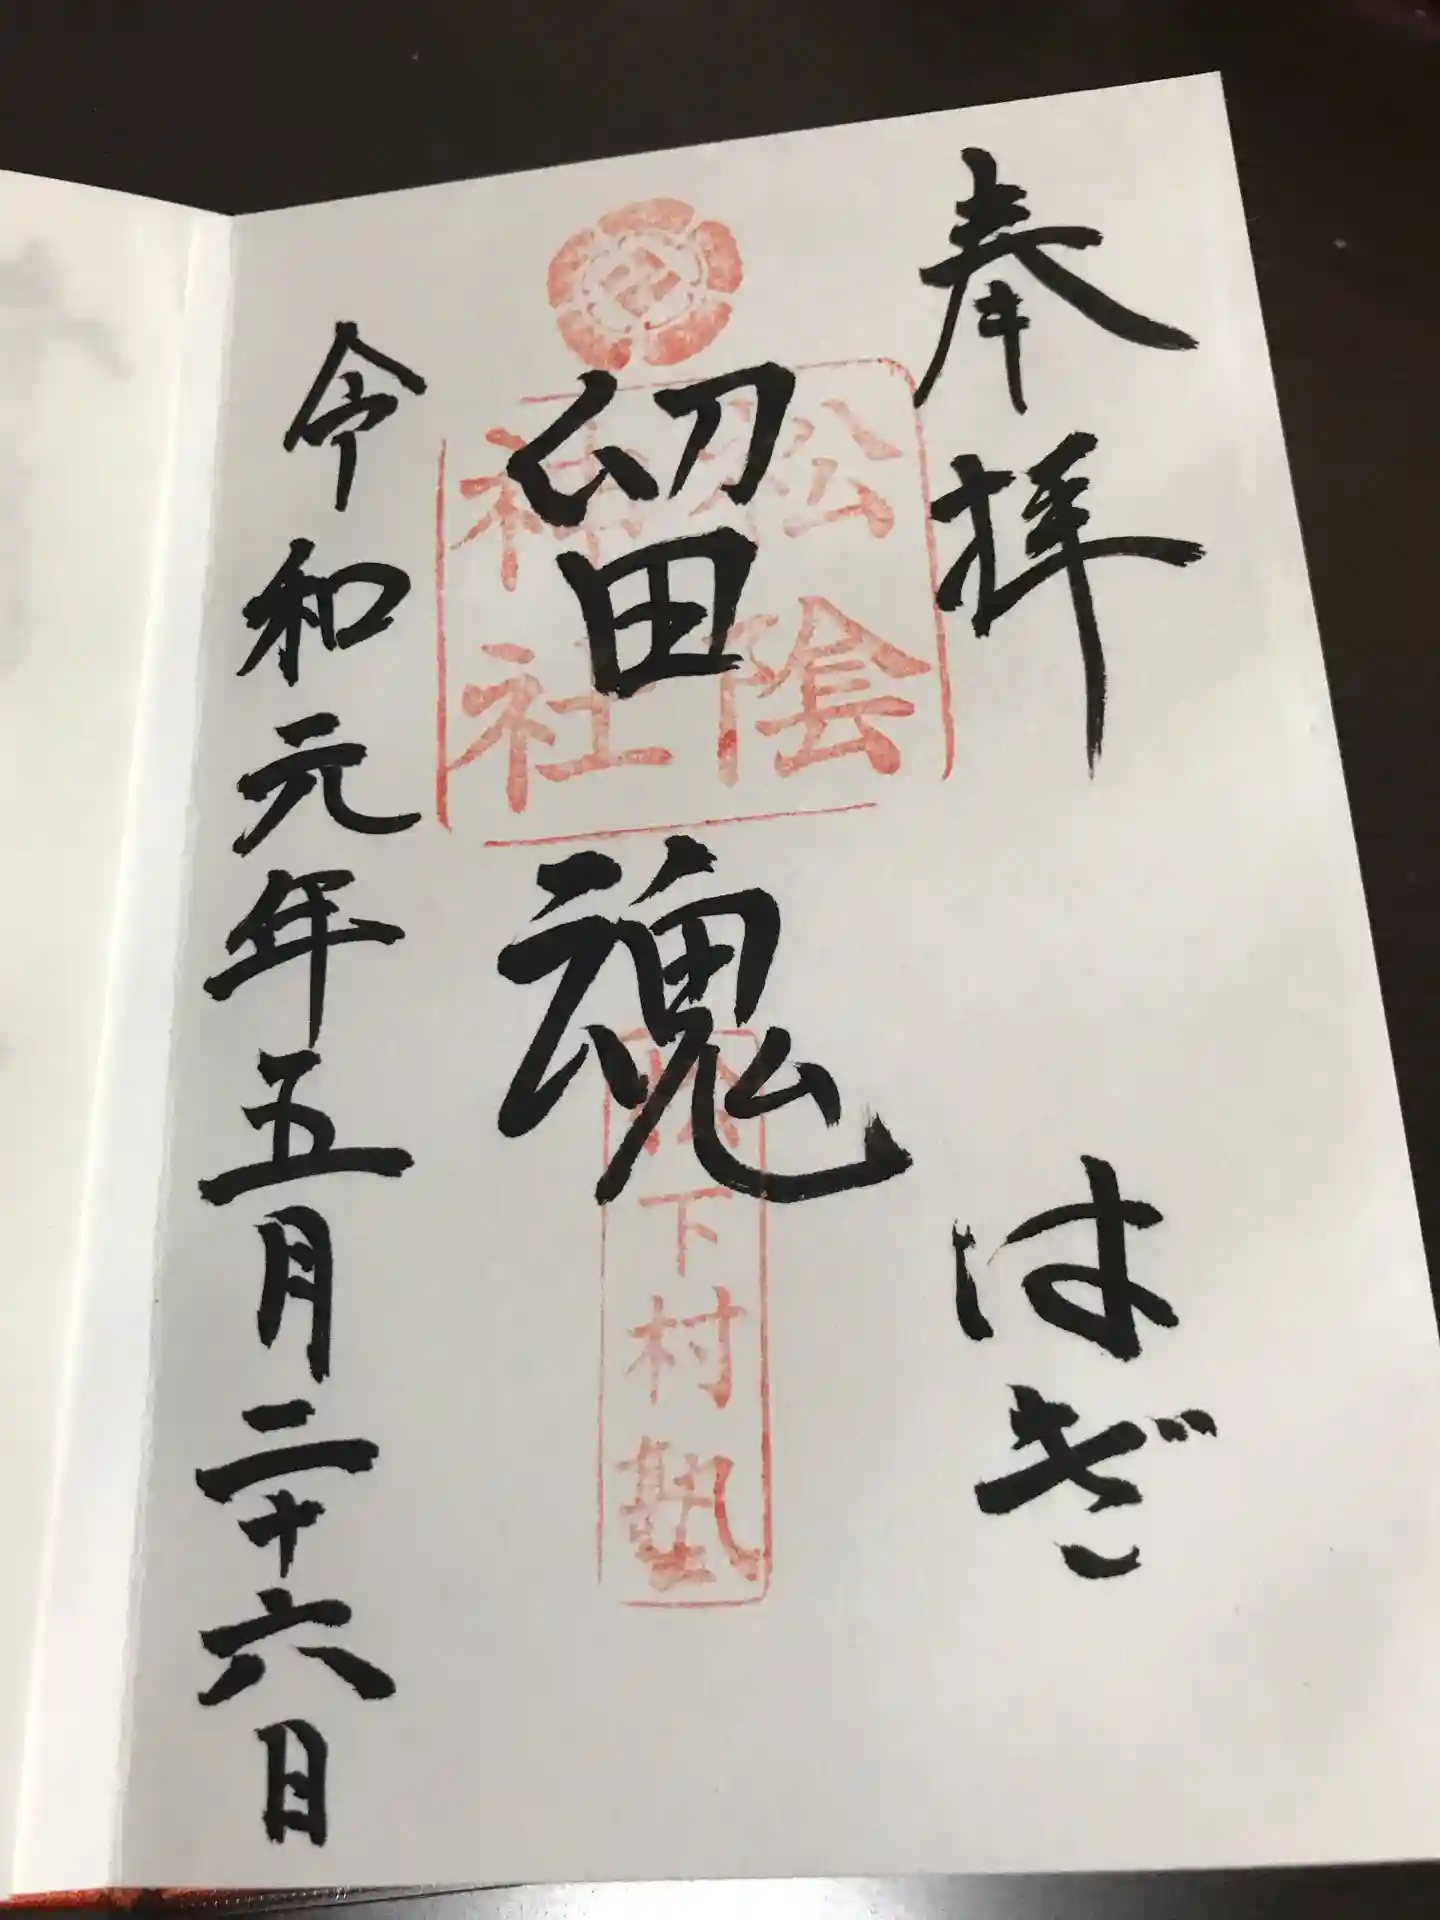 奉拝 はぎ
留魂
松陰
神社
松下村塾
令和元年五月二十六日